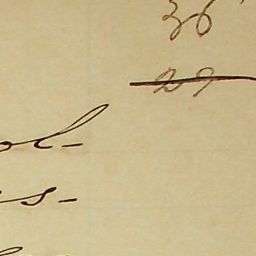 36
29
ol-
s-